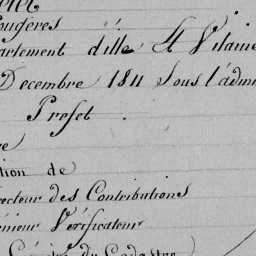 ougeres
artement d'ille Et Vilaine
Decembre 1811 Sous l'admi
Prefet
re
tion de
recteur des Contributions
enieur Vérificateur
du Cadastre